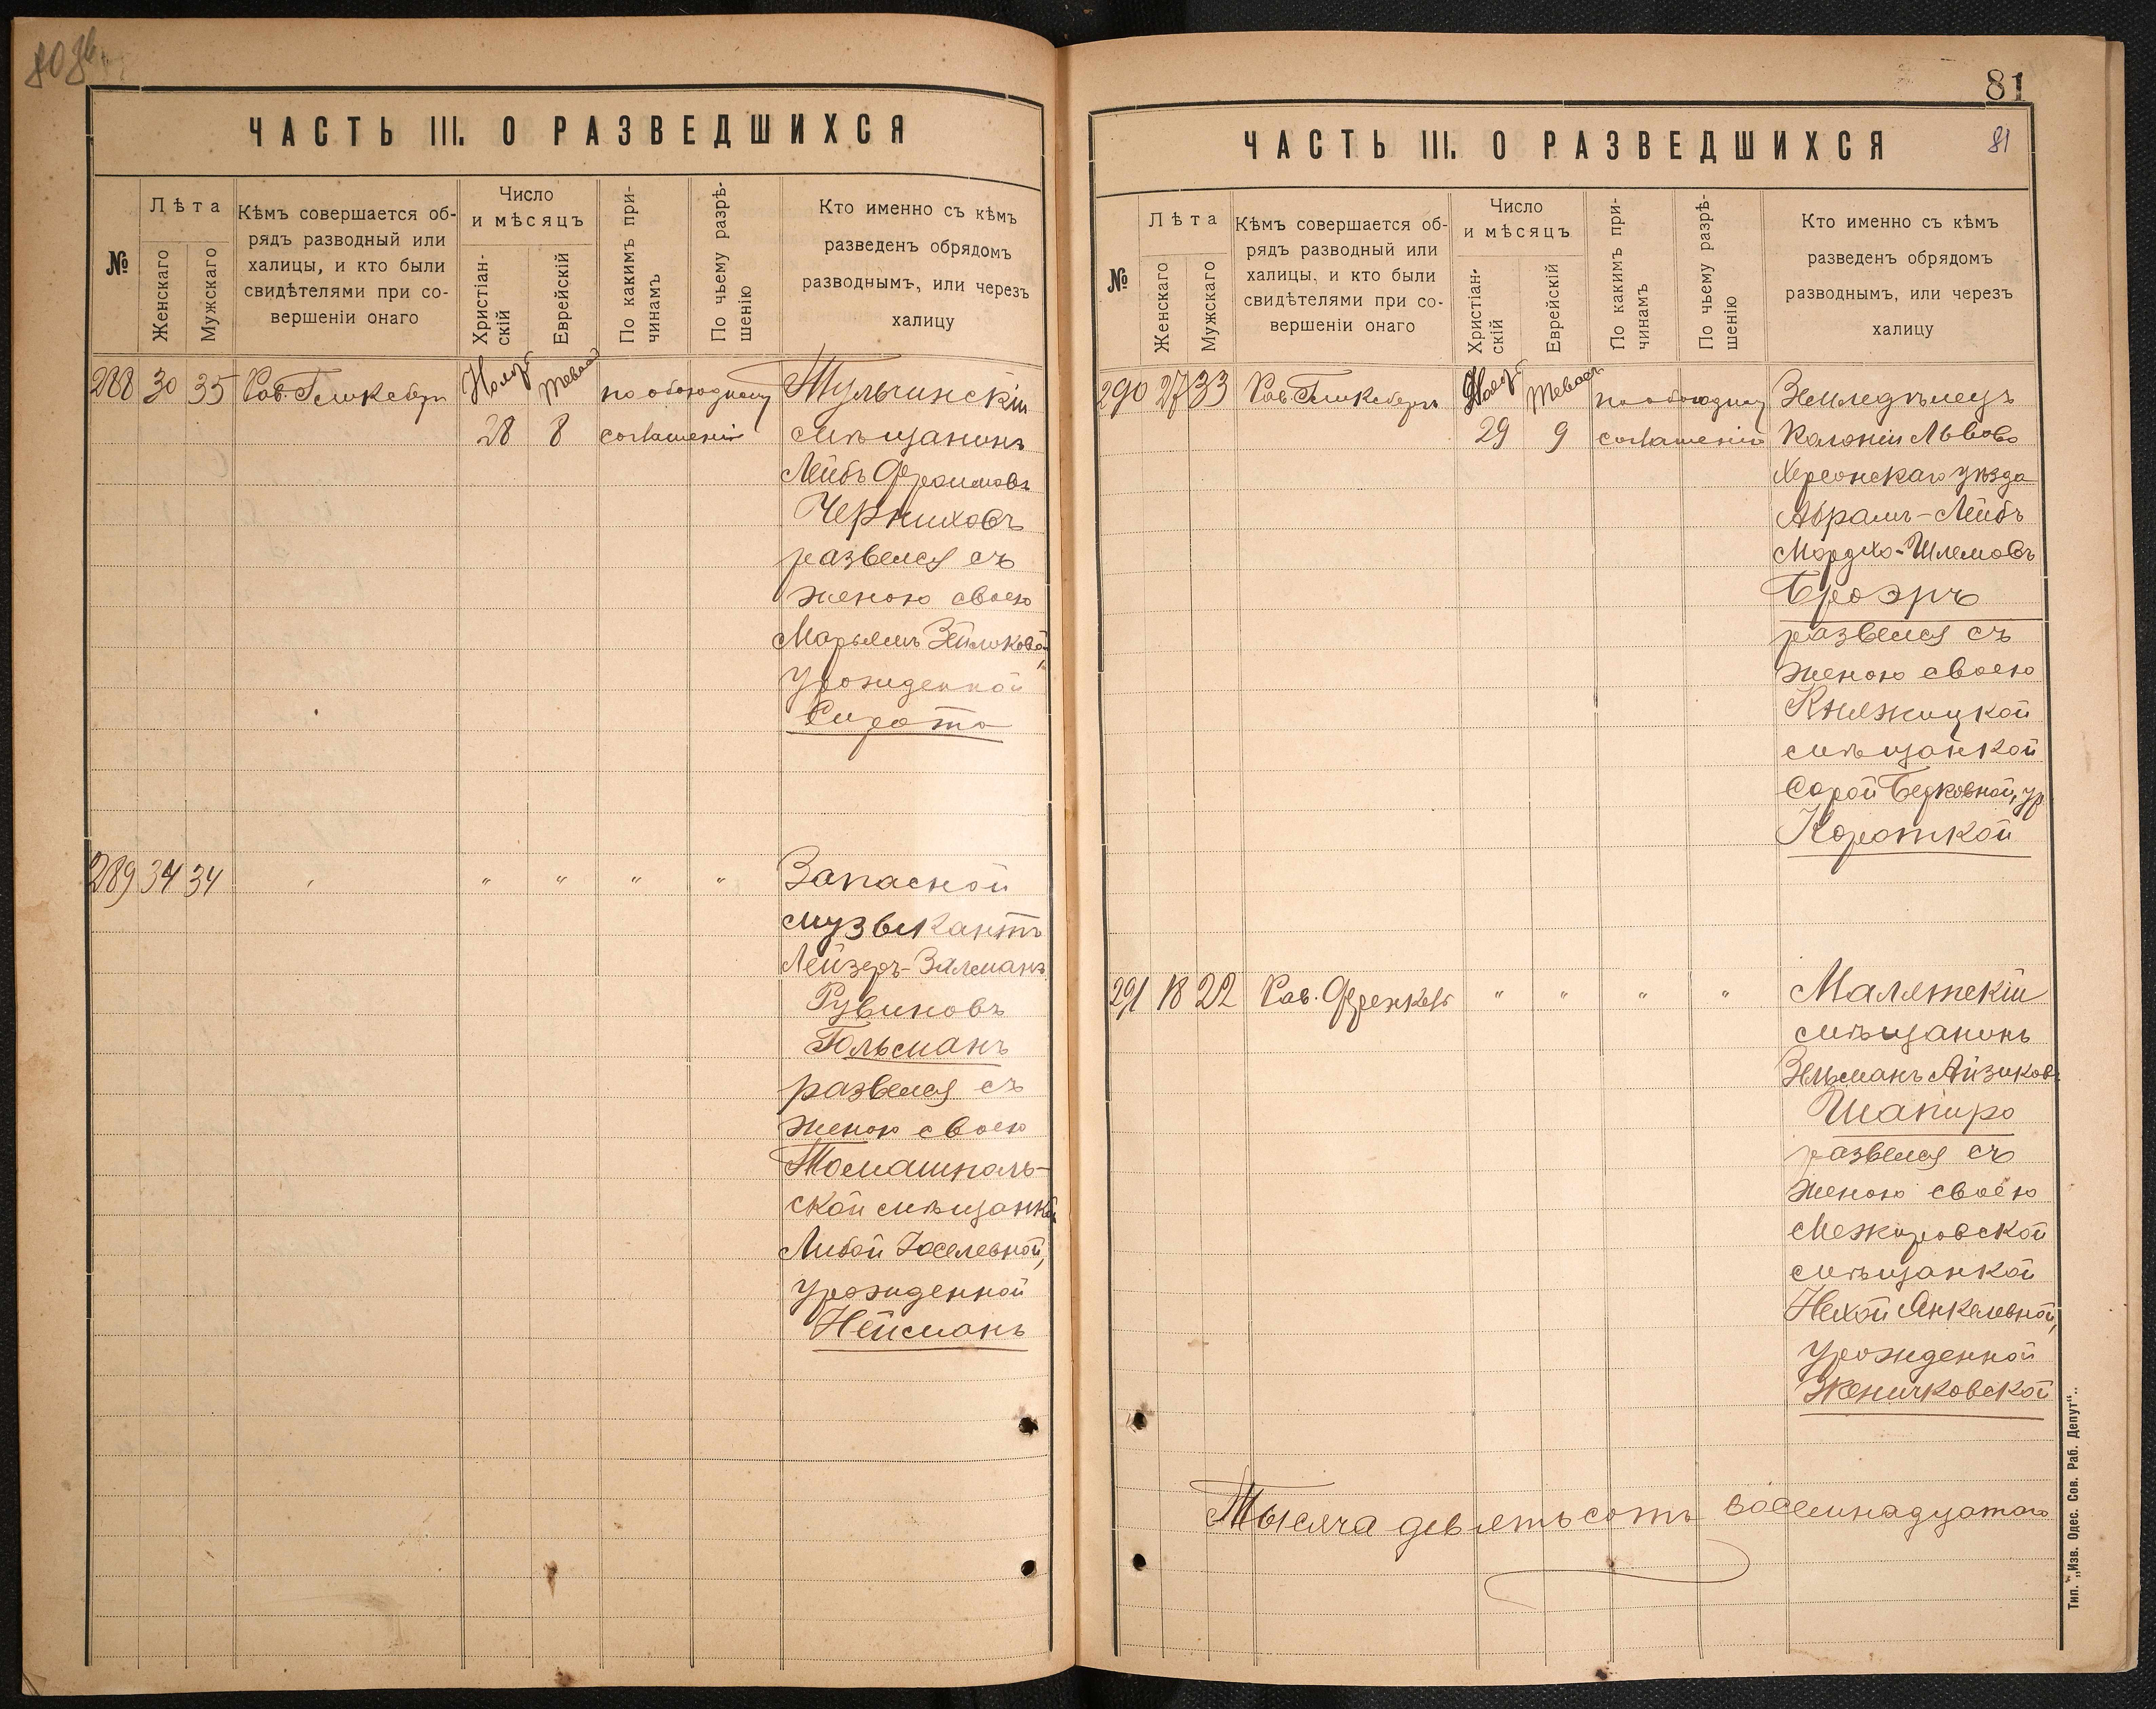 80 об.
ЧАСТЬ III. О РАЗВЕДШИХСЯ
№
Лѣта
Женскаго
Мужскаго
Кѣмъ совершается об-
рядъ разводный или
халицы, и кто были
свидѣтелями при со-
вершеніи онаго
Число
и мѣсяцъ
Христіан-
скій
Еврейскій
По какимъ при-
чинамъ
По чьему разрѣ-
шенію
Кто именно съ кѣмъ
разведенъ обрядомъ
разводнымъ, или черезъ
халицу
288 30 35 Рав. по обоюдному Тульчинскій
28 8 соглашенію мѣщанинъ
Лейбъ Фроимовъ
Черниховъ
развелся съ
женою своею
Марьямъ Зейликовой,
урожденной
Сирота
289 34 34 " " " " " Запасной
музыкантъ
Лейзеръ-Залманъ
Рувиновъ
Гольсманъ
развелся съ
женою своею
Томашполь-
ской мѣщанкой
Либой Іоселевной,
урожденной
Нейсманъ
81
81
ЧАСТЬ III. О РАЗВЕДШИХСЯ
№
Лѣта
Женскаго
Мужскаго
Кѣмъ совершается об-
рядъ разводный или
халицы, и кто были
свидѣтелями при со-
вершеніи онаго
Число
и мѣсяцъ
Христіан-
скій
Еврейскій
По какимъ при-
чинамъ
По чьему разрѣ-
шенію
Кто именно съ кѣмъ
разведенъ обрядомъ
разводнымъ, или черезъ
халицу
290 27 33 Рав. по обоюдному Земледѣлецъ
29 9 соглашенію Колоніи Львово
Херсонскаго уѣзда
Абрамъ-Лейбъ
Мордко-Шлемовъ
Броэръ
развелся съ
женою своею
Княжицкой
мѣщанкой
Сарой Берковной, ур.
Короткой
291 18 22 Рав. Френкель " " " " Малятскій
мѣщанинъ
Зельманъ Айзиковъ
Шапиро
развелся съ
женою своею
Межировской
мѣщанкой
Нехой Янкелевной,
урожденной
Женичковской
Тысяча девятьсотъ восемнадцатаго
Тип. „Изв. Одес. Сов. Раб. Депут".